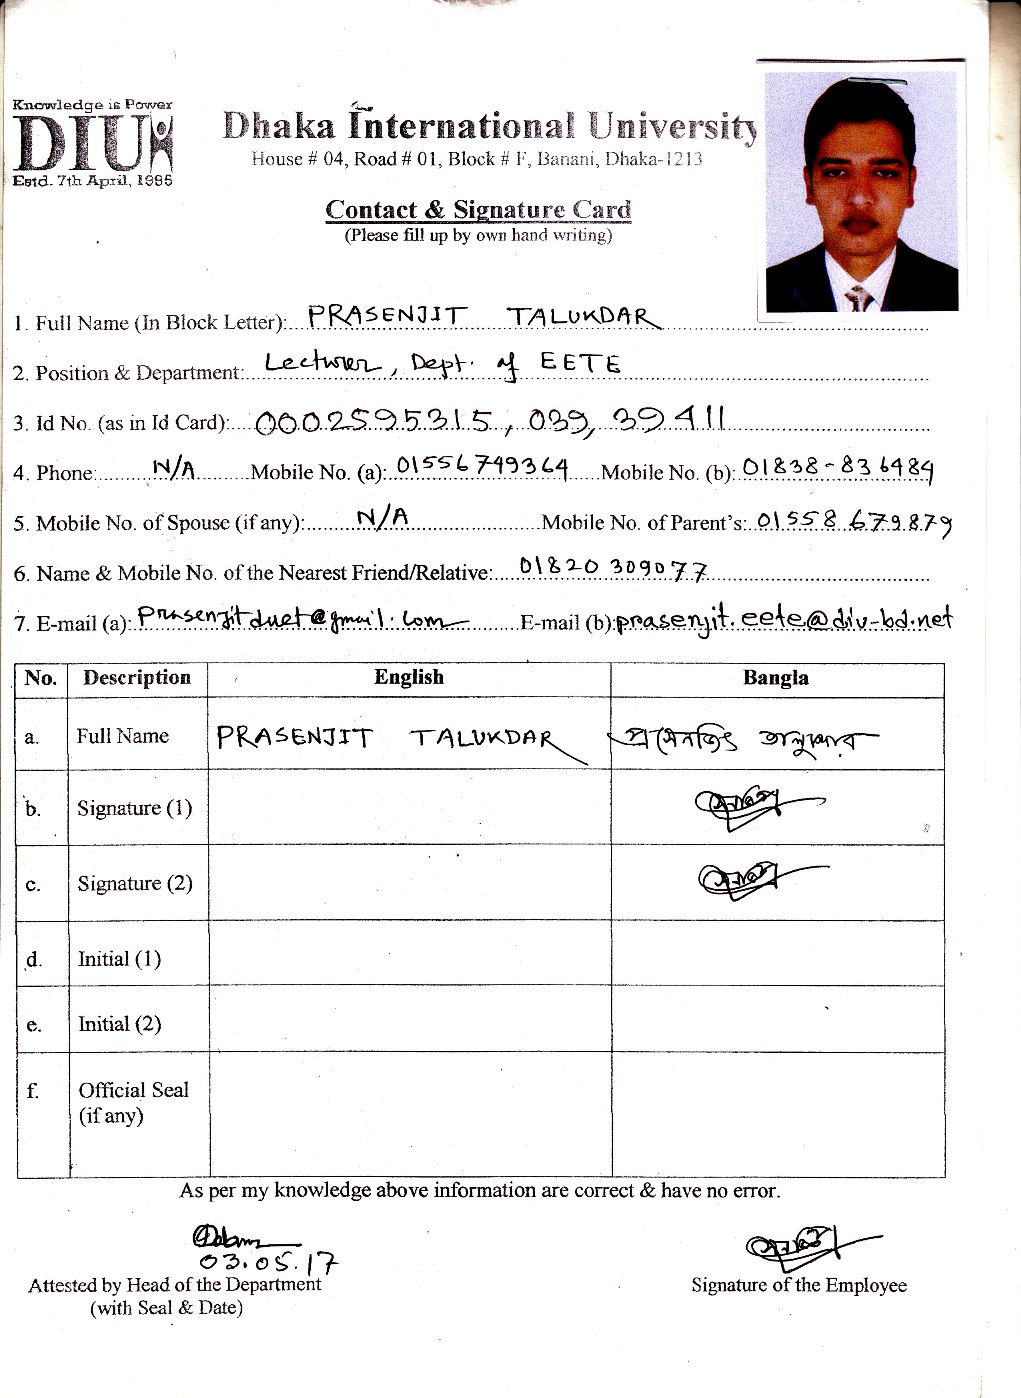 Knowledge is Power
DIU
Estd. 7th April, 1995
Dhaka International University
House # 04, Road # 01, Block # F, Banani, Dhaka-1213
Contact & Signature Card
(Please fill up by own hand writing)
1. Full Name (In Block Letter):...PRASENJIT TALUKDAR
2. Position & Department: Lecturer, Dept. of EETE
3. Id No. (as in Id Card):....0002595315, 039, 39411
4. Phone:..........N/A.........Mobile No. (a): 01556749364 .....Mobile No. (b): 01838-836484
5. Mobile No. of Spouse (if any):........N/A........Mobile No. of Parent's: 01558 679879
6. Name & Mobile No. of the Nearest Friend/Relative:....01820 309077
7. E-mail (a): Prasenjitduet@gmail.com ........E-mail (b): prasenjit.eete@diu-bd.net
No. Description English Bangla
a. Full Name PRASENJIT TALUKDAR প্রসেনজিৎ তালুকদার
b. Signature (1)
c. Signature (2)
d. Initial (1)
e. Initial (2)
f. Official Seal
(if any)
As per my knowledge above information are correct & have no error.
03.05.17
Attested by Head of the Department Signature of the Employee
(with Seal & Date)